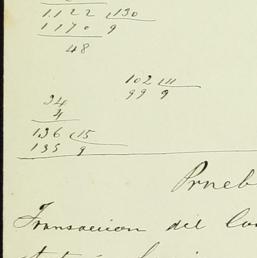 1122 130
1170 9
48
102 11
99 9
34
4
136 15
135 9
Prueb
Transaccion del Co